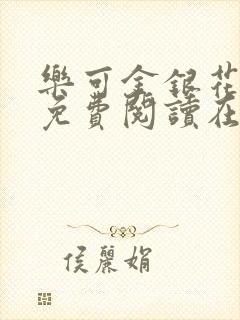 樂可金銀花
免費閱讀在
侯麗娟